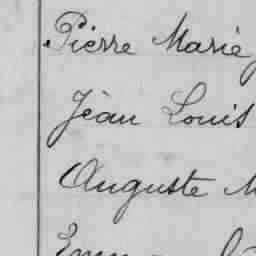 Pierre Marie
Jean Louis
Auguste